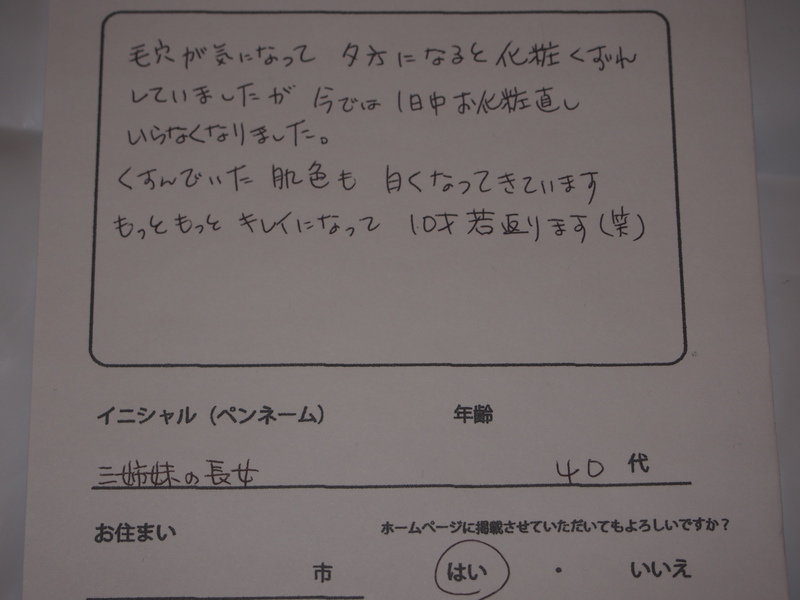 毛穴が気になって 夕方になると化粧くずれ
していましたが 今では 1日中お化粧直し
いらなくなりました。
くすんでいた 肌色も 白くなってきています
もっともっと キレイになって 10才若返ります(笑)
イニシャル（ペンネーム） 年齢
三姉妹の長女 40 代
お住まい ホームページに掲載させていただいてもよろしいですか？
市 はい ・ いいえ